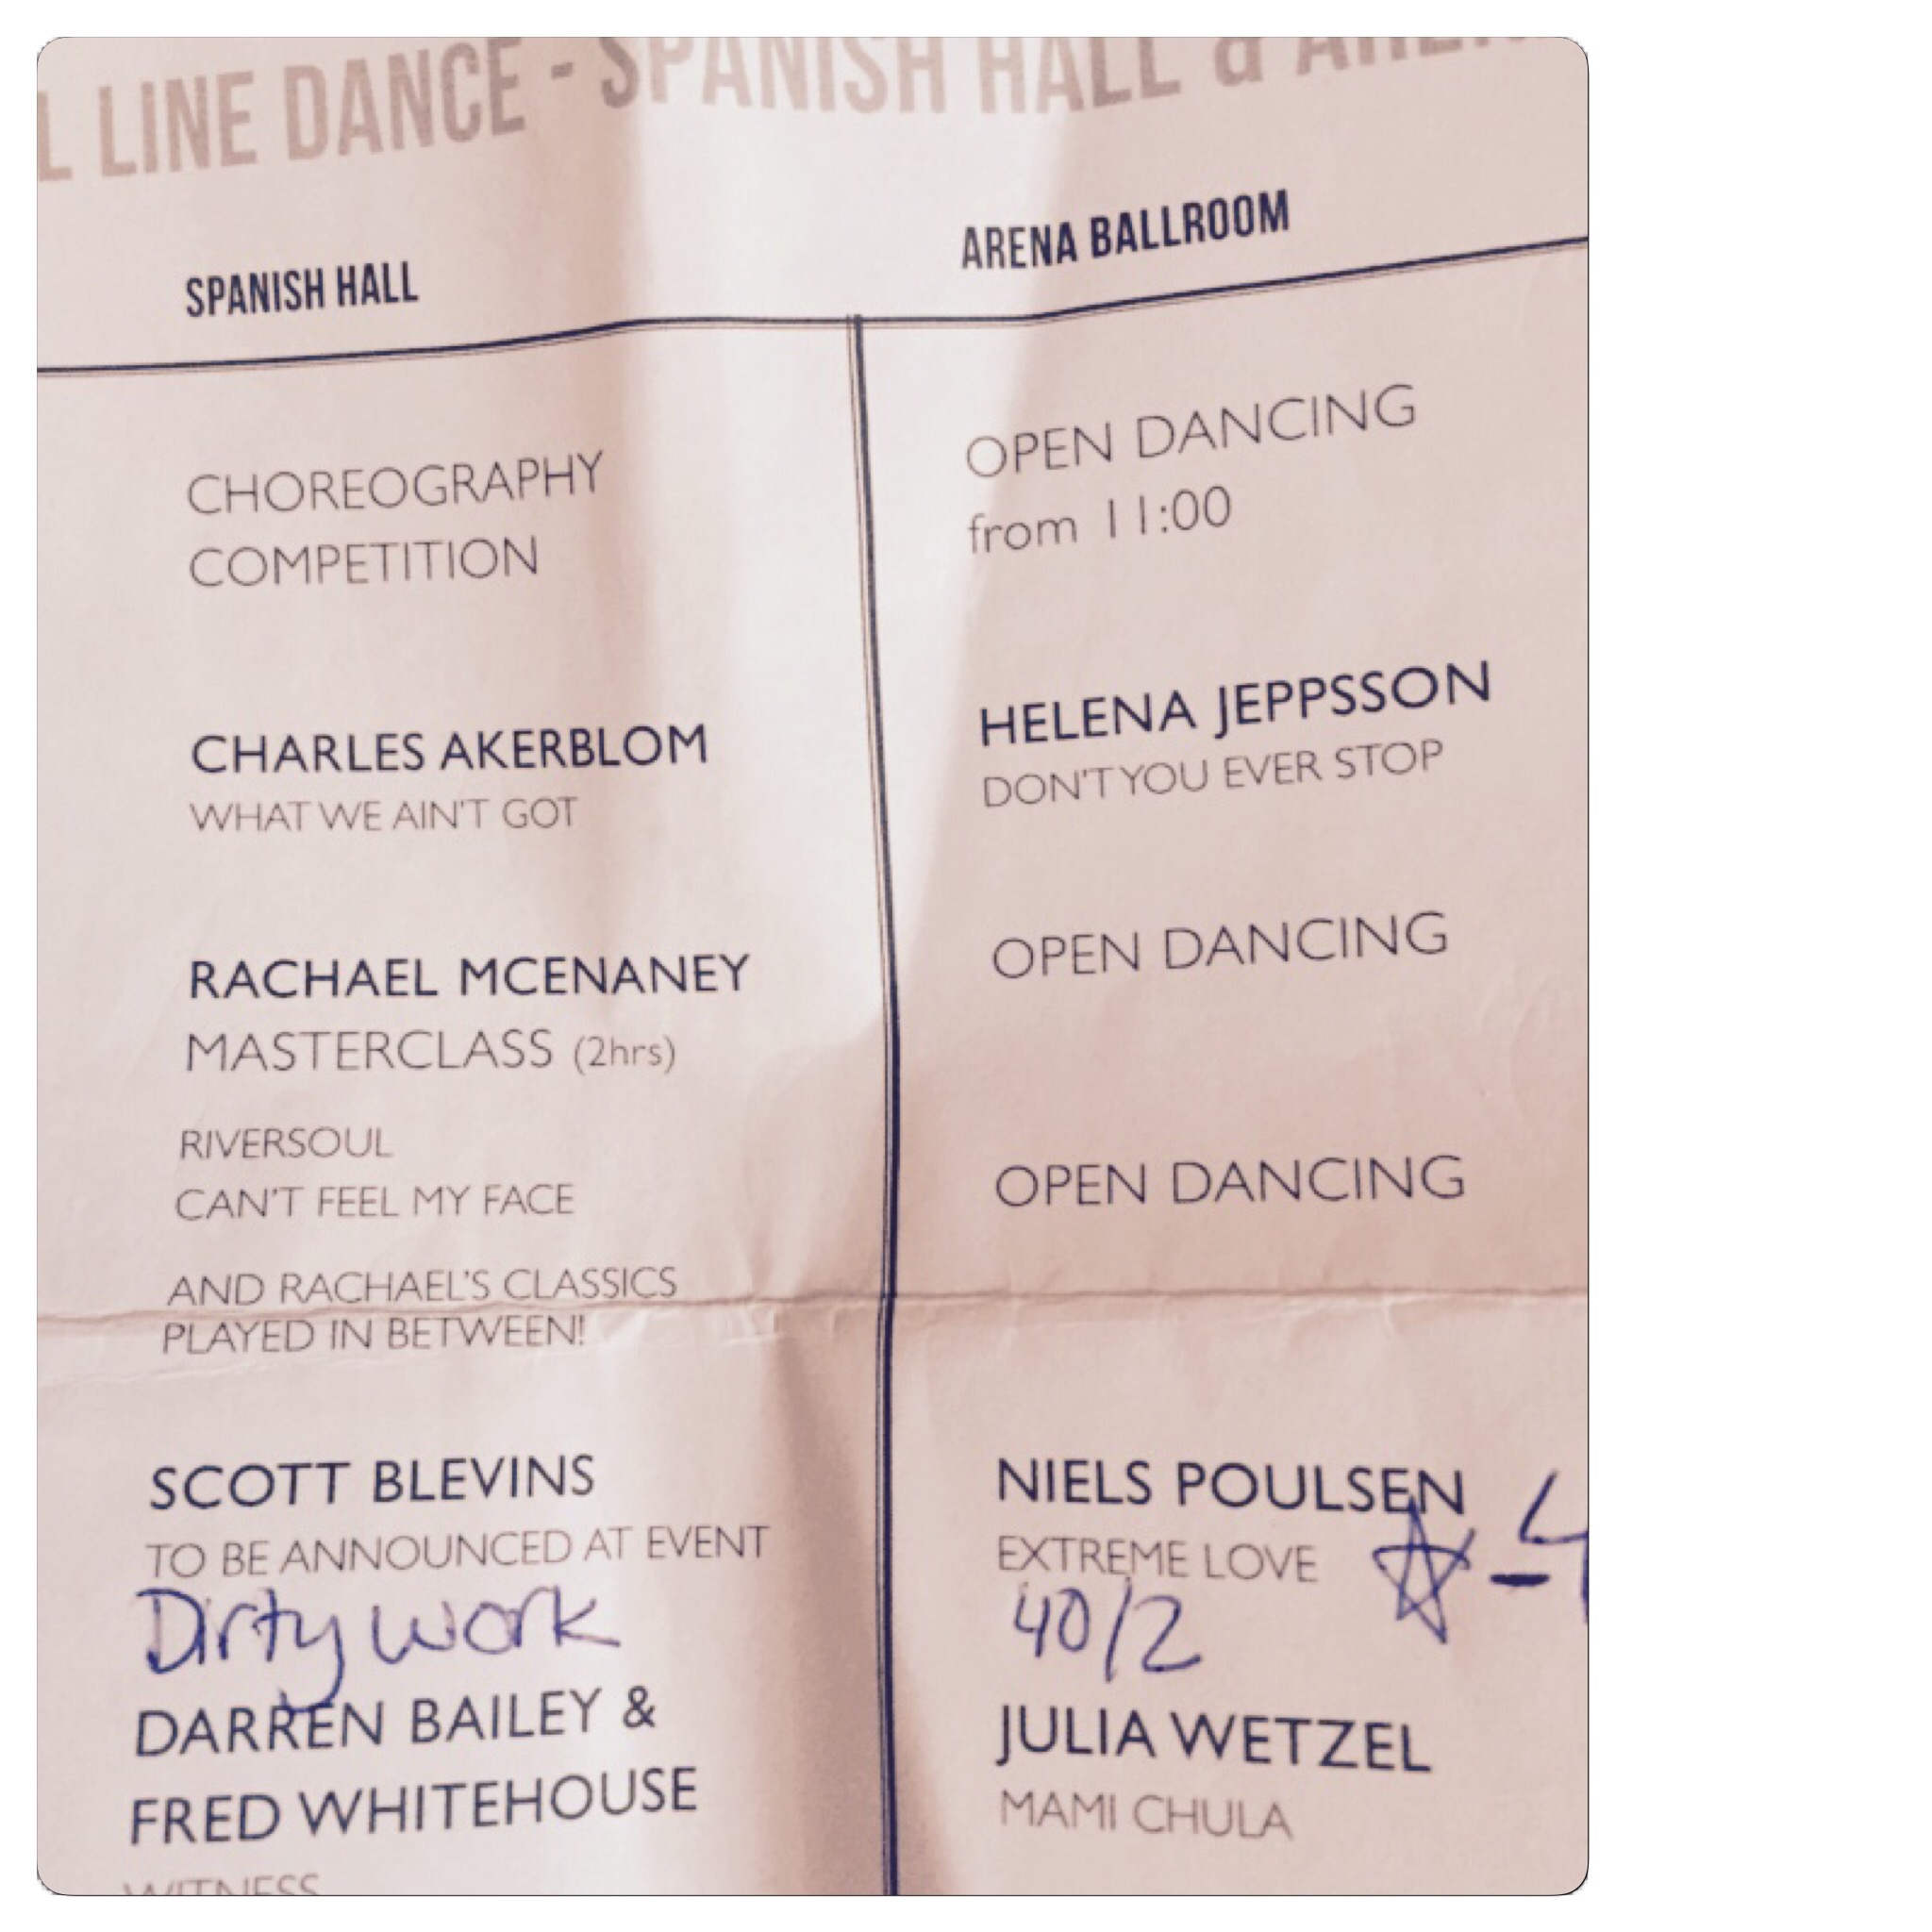 L LINE DANCE - SPANISH HALL & AREN
SPANISH HALL
CHOREOGRAPHY
COMPETITION
CHARLES AKERBLOM
WHAT WE AIN'T GOT
RACHAEL MCENANEY
MASTERCLASS (2hrs)
RIVERSOUL
CAN'T FEEL MY FACE
AND RACHAEL'S CLASSICS
PLAYED IN BETWEEN!
SCOTT BLEVINS
TO BE ANNOUNCED AT EVENT
Dirty work
DARREN BAILEY &
FRED WHITEHOUSE
WITNESS
ARENA BALLROOM
OPEN DANCING
from 11:00
HELENA JEPPSSON
DON'T YOU EVER STOP
OPEN DANCING
OPEN DANCING
NIELS POULSEN
EXTREME LOVE
40/2
JULIA WETZEL
MAMI CHULA